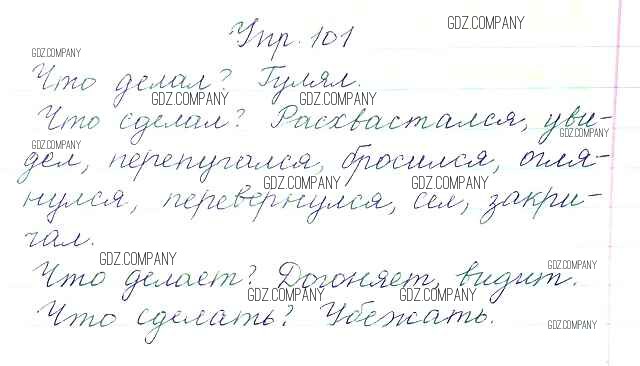 Упр. 101
GDZ.COMPANY
GDZ.COMPANY
Что делал? Гулял.
GDZ.COMPANY GDZ.COMPANY
Что сделал? Расхвастался, уви-
GDZ.COMPANY GDZ.COMPANY
дел, перепугался, бросился, огля-
GDZ.COMPANY GDZ.COMPANY
нулся, перевернулся, сел, закри-
чал.
GDZ.COMPANY GDZ.COMPANY
Что делает? Догоняет, видит.
GDZ.COMPANY GDZ.COMPANY
Что сделать? Убежать.
GDZ.COMPANY